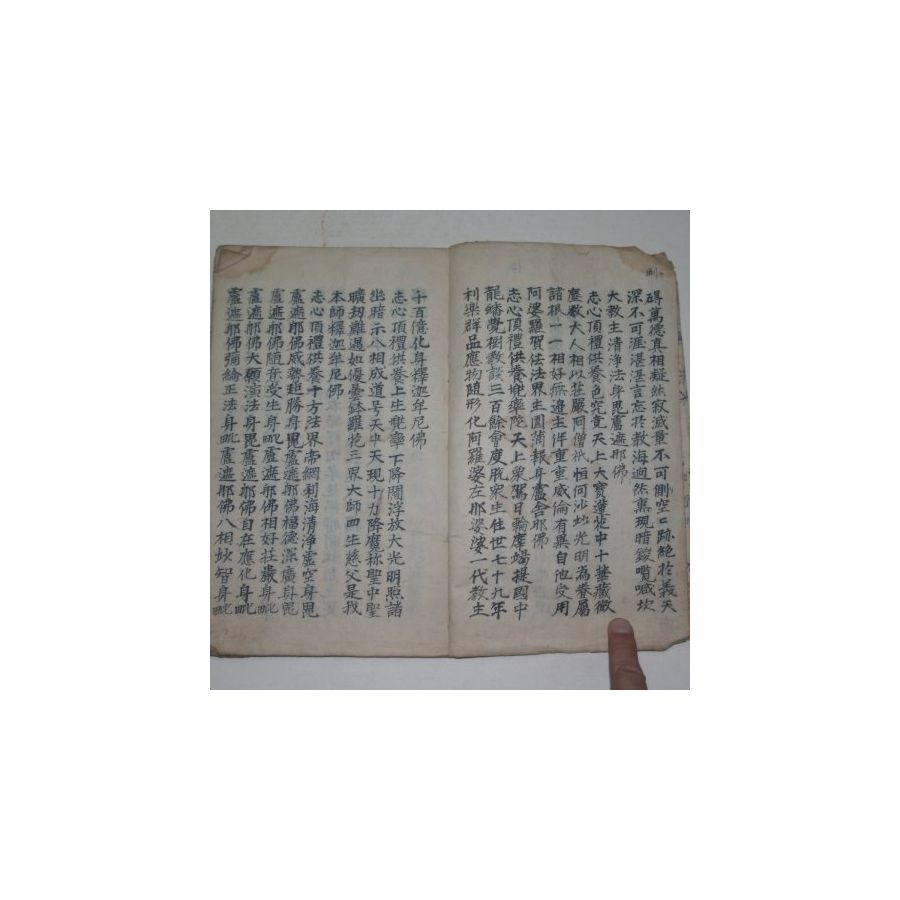 碍萬德真相凝然寂滅量不可測空空跡絶於義天
深不可涯湛湛言忘於教海逈然裏現暗錢嘴喊坎
大教主清淨法身毘盧遮那佛
志心頂禮供養色究竟天上大寶蓮花中十華藏微
塵数大人相以莊嚴阿僧祇恒河沙妙光明為眷屬
諸根一一相好無邊主伴重重威倫有異自他受用
阿婆羅賀佉法界主圓滿報身盧舍那佛
志心頂禮供養兠率陀天上乗駕日輪摩竭提國中
龍蟠覺樹教談三百餘會度脫衆生住世七十九年
利樂群品應物随形化阿羅婆左那婆婆一代教主
千百億化身釋迦牟尼佛
志心頂禮供養上生兠率下降閻浮放大光明照諸
幽暗示八相成道号天中天現十力降魔称聖中聖
曠刼難遇如優曇鉢羅花三界大師四生慈父是我
本師釋迦牟尼佛
志心頂禮供養十方法界帝網刹海清淨虛空身毘
盧遮那佛威勢超勝身毘盧遮那佛福德深廣身毘
盧遮那佛随意受生身毗盧遮那佛相好莊嚴身毗
盧遮那佛大願演法身毘盧遮那佛自在應化身毗
盧遮那佛彌綸正法身毗盧遮那佛八相妙智身毗